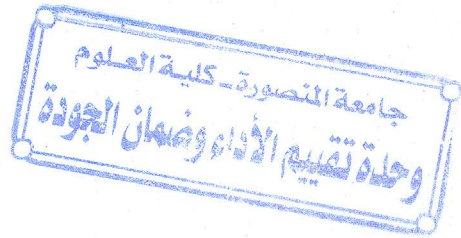 جامعة المنصورة - كلية العلوم
وحدة تقييم الأداء وضمان الجودة